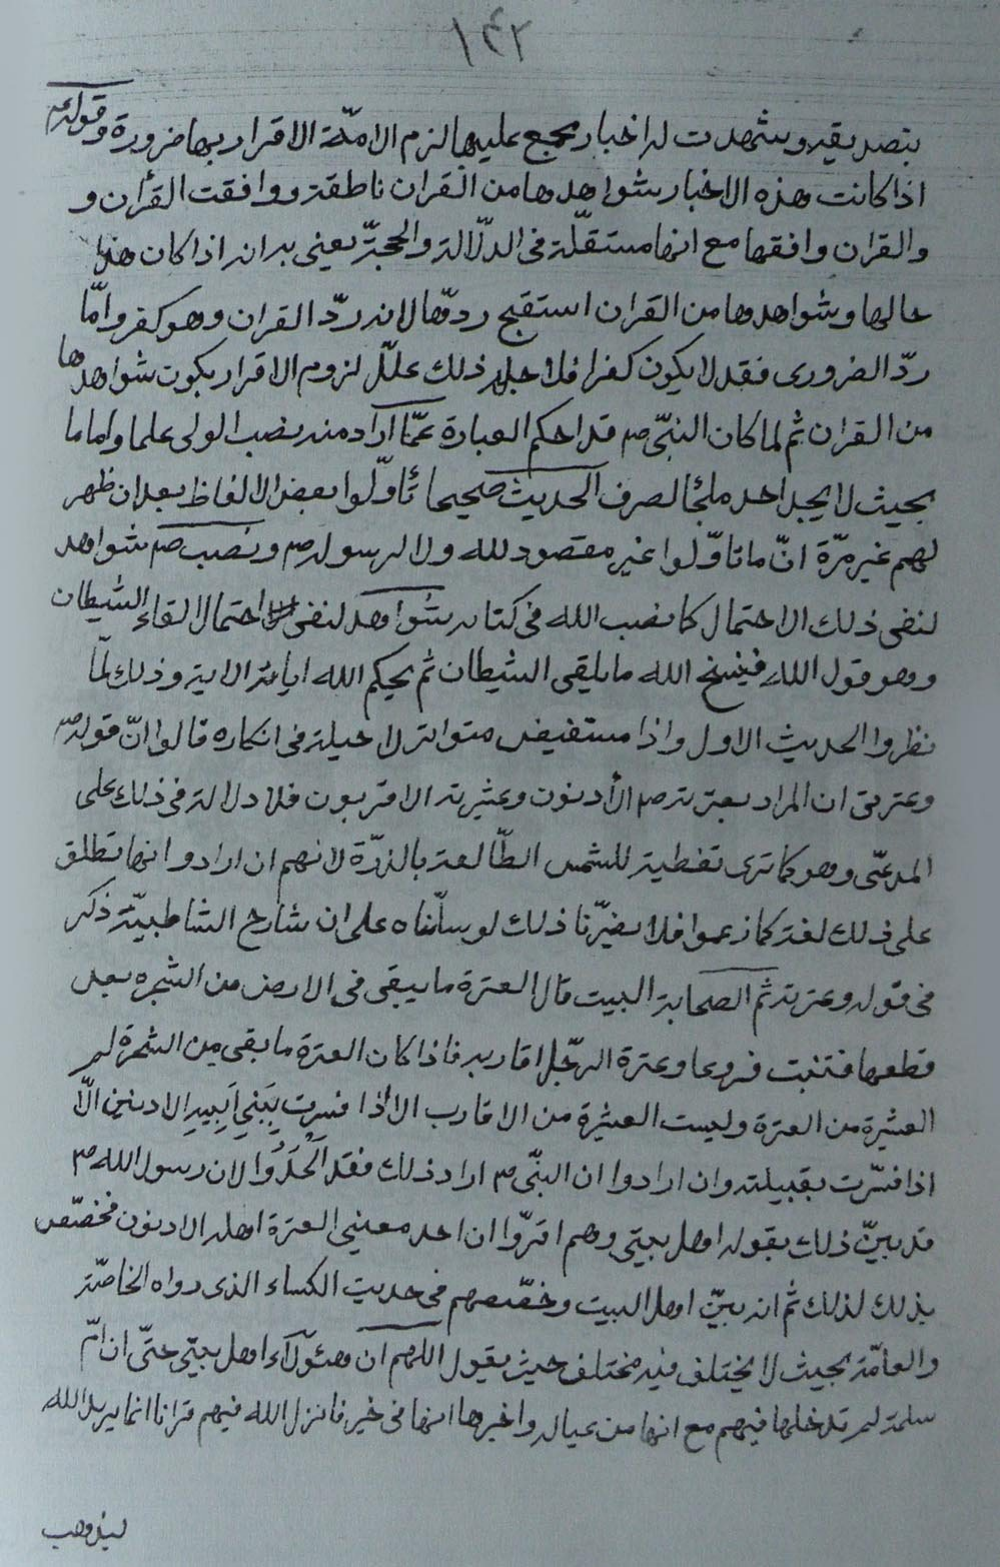 ١٤٢
بتصديقه وشهدت له اخبار مجمع عليها لزم الامّة الاقرار بها ضرورة وقوله ع
اذا كانت هذه الاخبار شواهدها من القران ناطقة ووافقت القرأن و
والقران وافقها مع انها مستقلّة فى الدلّالة والحجّيّة يعنى به انه اذا كان هذا
حالها وشواهدها من القران استقبح ردّها لانه ردّ القران وهو كفر وامّا
ردّ الضرورى فقد لا يكون كفرا فلاجل ذلك علّل لزوم الاقرار بكون شواهدها
من القران ثم لما كان النبىّ ص قد احكم العبارة عمّا اراد منه بنصب الولى علما واماما
بحيث لا يجد احد ملجئا لصرف الحديث صحيحا تأوّلوا بعض الالفاظ بعد ان ظهر
لهم غير مرّة انّ ما تاوّلوا غير مقصود لله ولا لرسوله ص ونصب ص شواهد
لنفى ذلك الاحتمال كما نصب الله فى كتابه شواهد لنفى احتمال القاء الشيطان
وهو قول الله فينسخ الله ما يلقى الشيطان ثم يحكم الله اياته الاية وذلك لمّا
نظروا الحديث الاول واذا مستفيض متواتر لا حيلة فى انكاره قالوا انّ قوله ص
وعترتى ان المراد بعترته ص الأدنون وعشيرته الاقربون فلا دلالة فى ذلك على
المدعّى وهو كما ترى تغطية للشمس الطّالعة بالذرّة لانهم ان ارادوا انها تطلق
على ذلك لغة كما زعموا فلا يضرّنا ذلك لو سلّمناه على ان شارح الشاطبيّة ذكر
فى قوله وعترته ثم الصحابة البيت قال العترة ما يبقى فى الارض من الشجره بعد
قطعها فتنبت فروعا وعترة الرجّل اقاربه فاذا كان العترة ما بقى من الشجرة لم
العشيرة من العترة وليست العشيرة من الاقارب الا اذا فسرت بِبَنِي اَبِيهِ الادنين الّا
اذا فسّرت بقبيلته وان ارادوا ان النبّى ص اراد ذلك فقد الْحَدُوا لان رسول الله ص
قد بيّن ذلك بقوله اهل بيتى وهم اقرّوا ان احد معنيي العترة اهله الادنون فخصّص
بذلك لذلك ثم انه بيّن اهل البيت وخصّصهم فى حديث الكساء الذى رواه الخاصّة
والعامّة بحيث لا يختلف فيه مختلف حيث يقول اللهم ان هئولآء اهل بيتى حتّى ان امّ
سلمة لم يدخلها فيهم مع انها من عياله واخبرها انها فى خير فانزل الله فيهم قرانا انما يريد الله
ليذهب